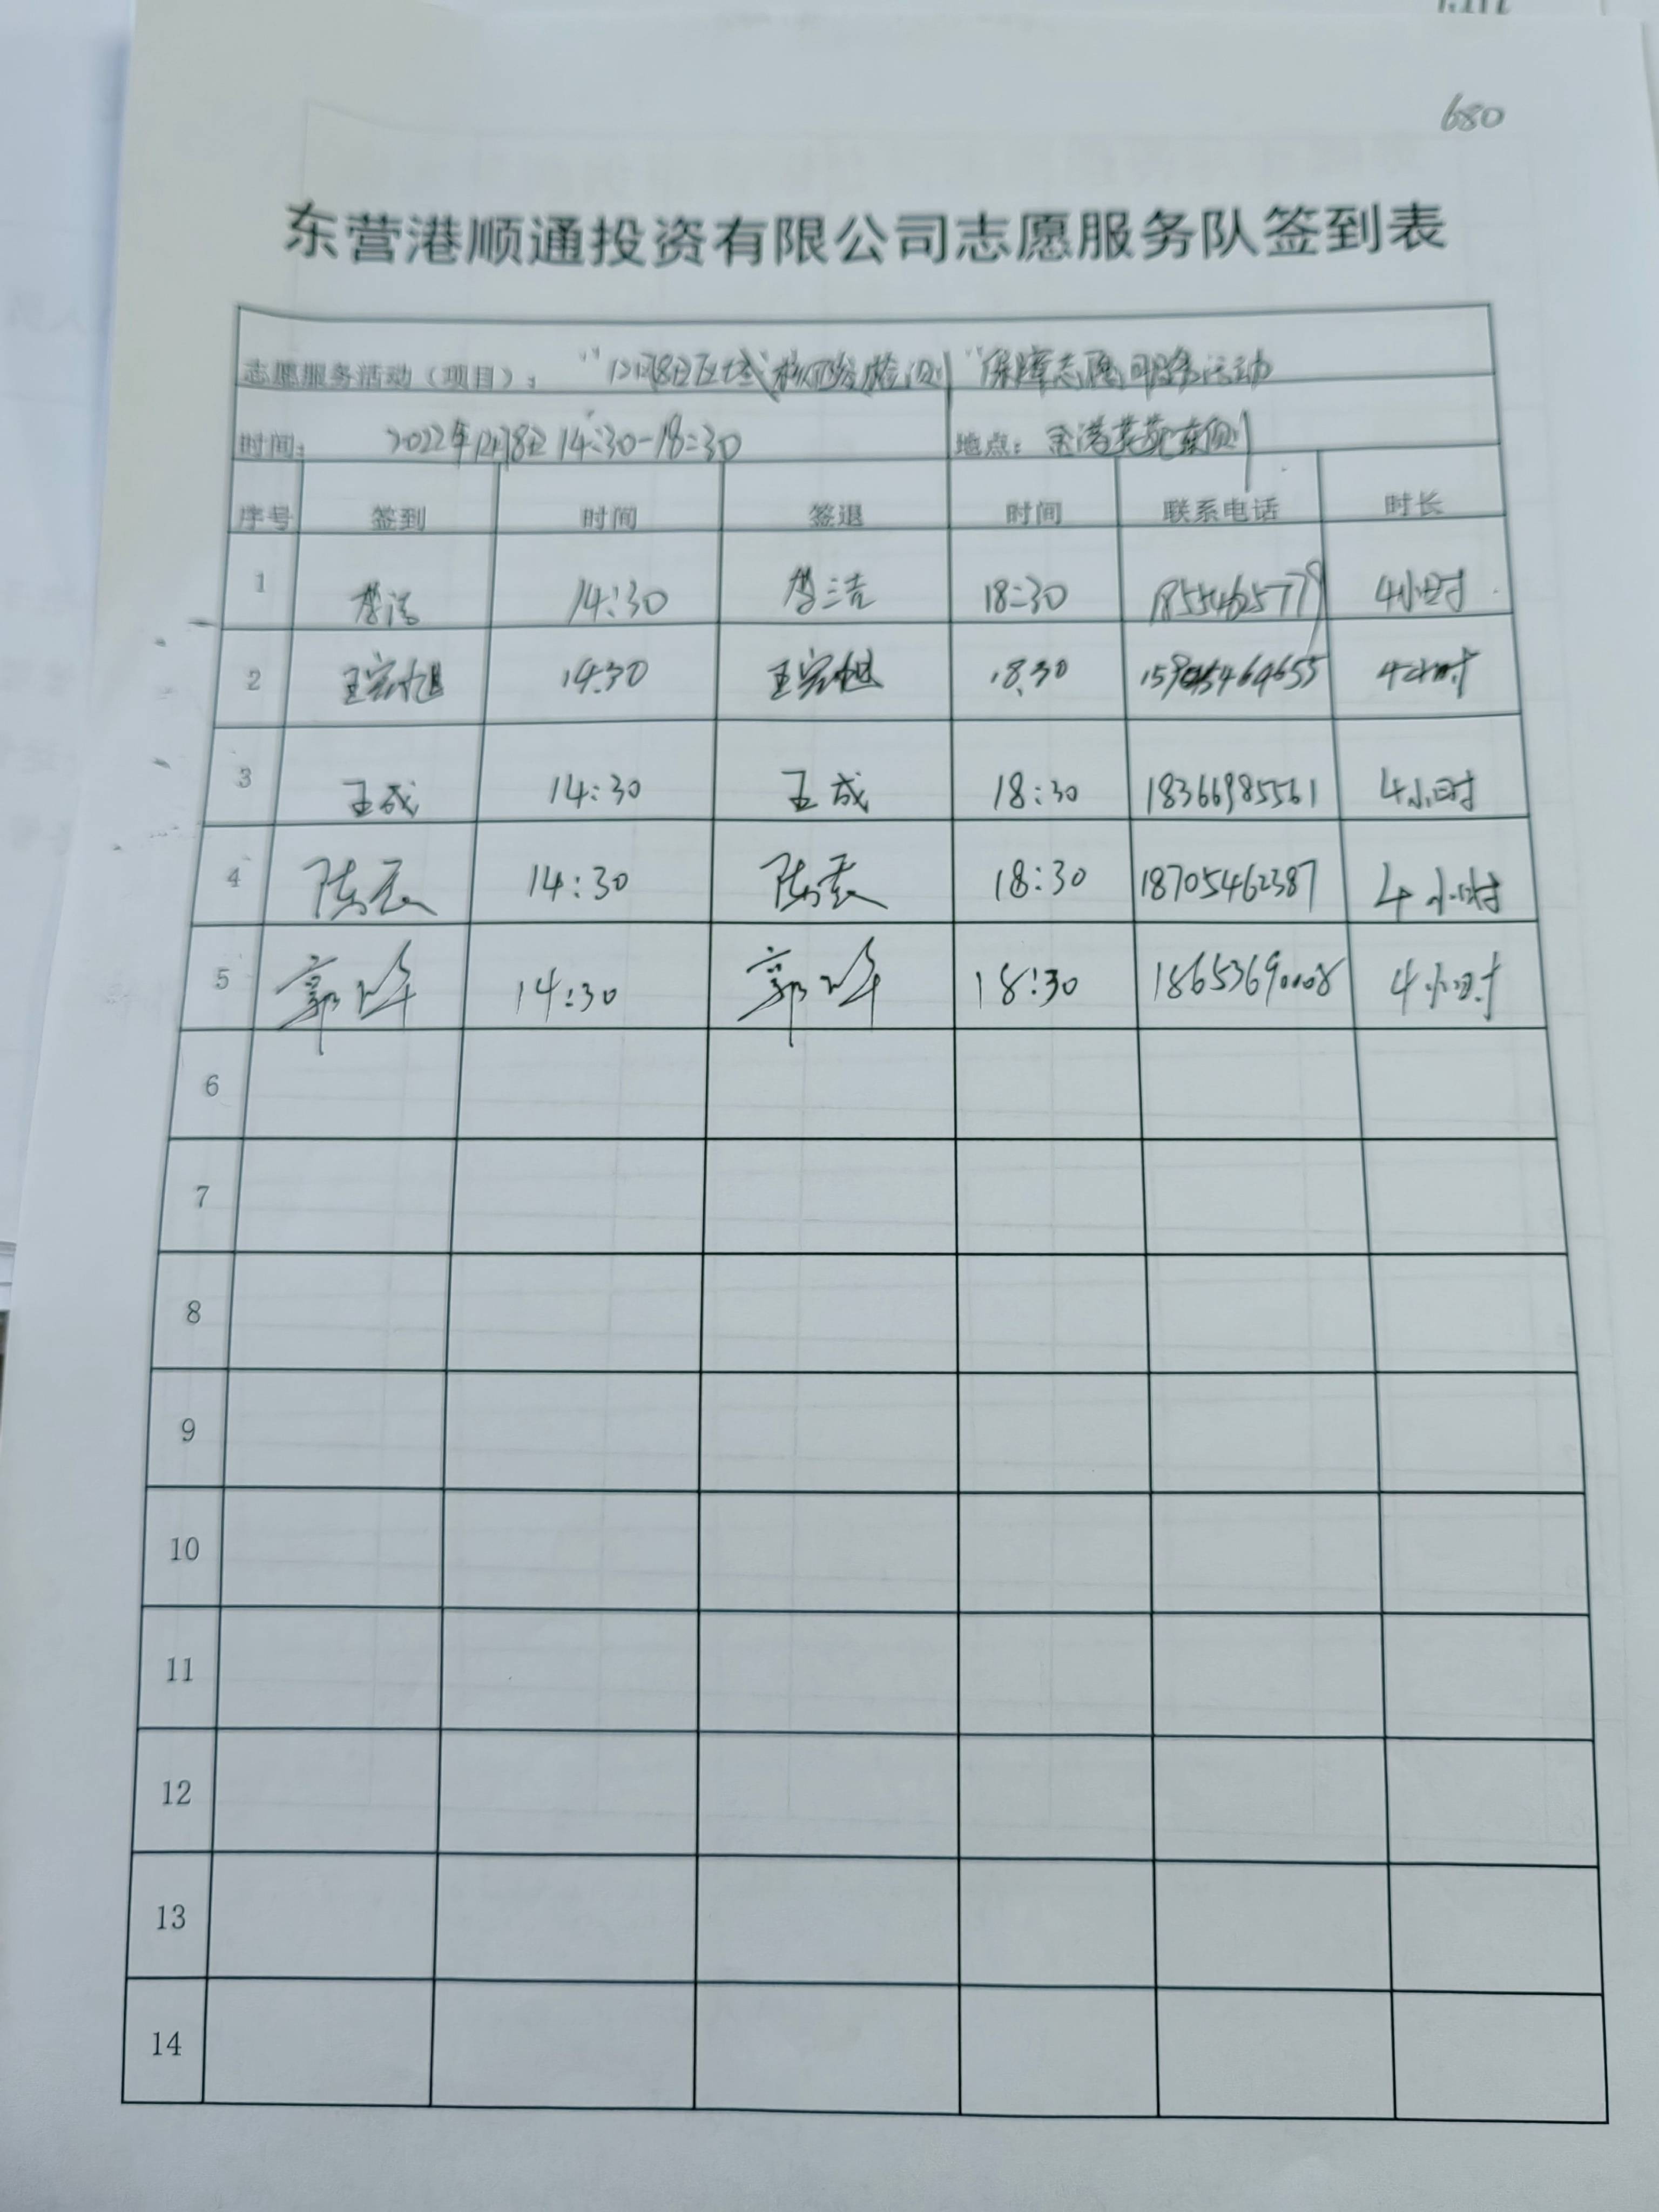 680
东营港顺通投资有限公司志愿服务队签到表
志愿服务活动（项目）： "12月8日区域核酸检测"保障志愿服务活动
时间： 2022年12月8日 14:30-18:30 地点： 金港 东侧
序号 签到 时间 签退 时间 联系电话 时长
1 14:30 18:30 4小时
2 14:30 18:30 4小时
3 王成 14:30 王成 18:30 18366985561 4小时
4 14:30 18:30 18705462387 4小时
5 郭峰 14:30 郭峰 18:30 18653690008 4小时
6
7
8
9
10
11
12
13
14